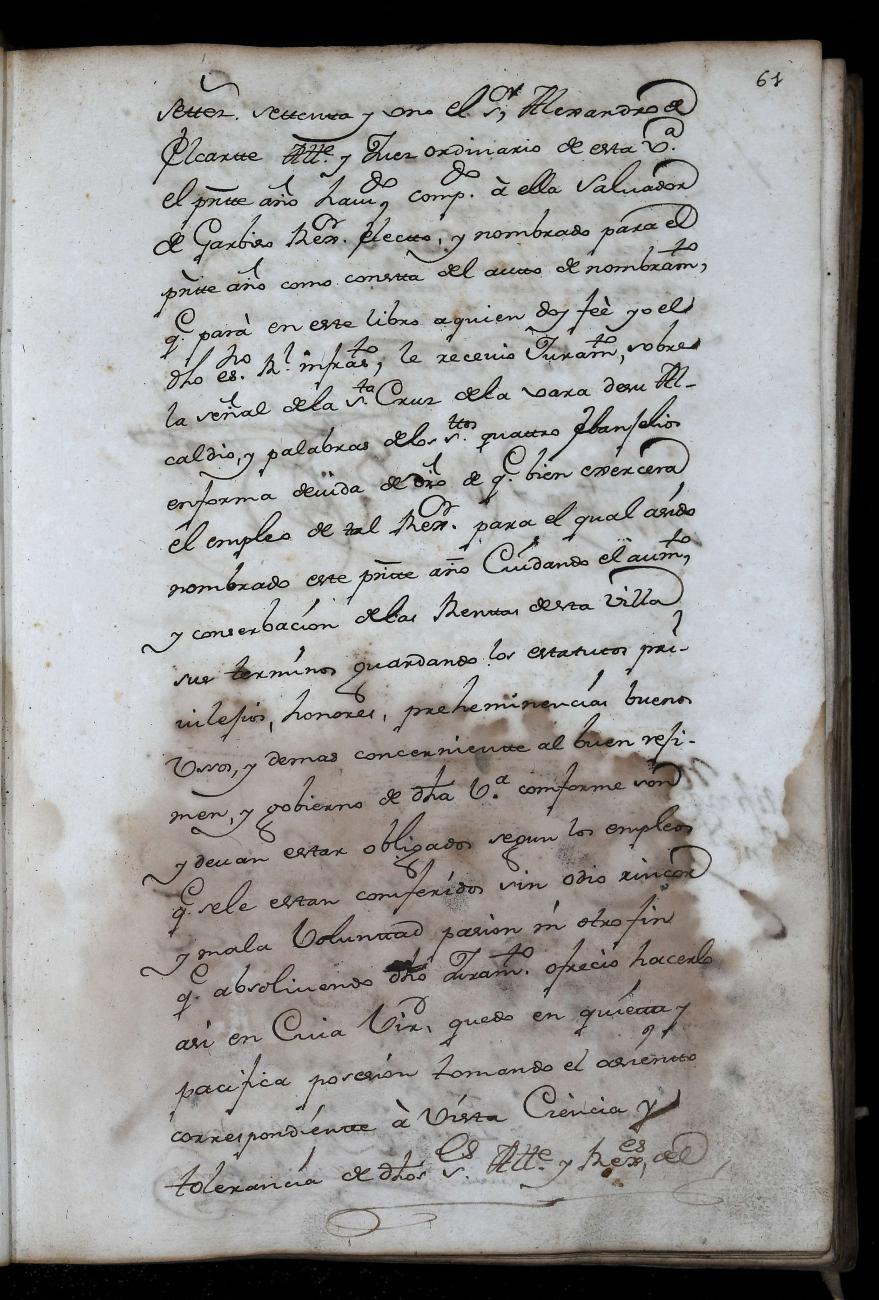 61
setter. settenta y uno el S.r Alexandro de
Elcartte Alle. y Juez ordinario de esta V.a
el pntte año haui.do comp.do à ella Salvador
de Garbiso Rex.or electto, y nombrado para el
pntte año como constta del autto de nombram.to,
q.e parà en este libro a quien doy feè yo el
dho es.no R.l infras.to, le recevio Juram.to, sobre
la señal de la s.ta Cruz de la vara de su Al-
caldio, y palabras de los s.ttos quattro Ebanjelios
en forma devida de dro de q.e bien exercera
el empleo de tal Rex.or para el qual asido
nombrado este pntte año Cuidando el aum.to,
y conserbación de las Renttas desta Villa
sus terminos guardando los estatutos pri-
vilejios, honores, preheminencias buenos
Ussos, y demas concerniente al buen reji-
men, y gobierno de dha V.a comforme son
y devan estar obligados segun los empleos
q.e sele estan comferidos sin odio rincor
y mala Volunttad pasion ni otro fin
q.e absoliviendo dho Juram.to. ofrecio hacerlo
asi en Cuia Vir.d, quedo en quietta y
pacifica posesión tomando el asientto
correspondientte à Vista Ciència y
toleranciá de dhos S.es Alle. y Rex.es, del